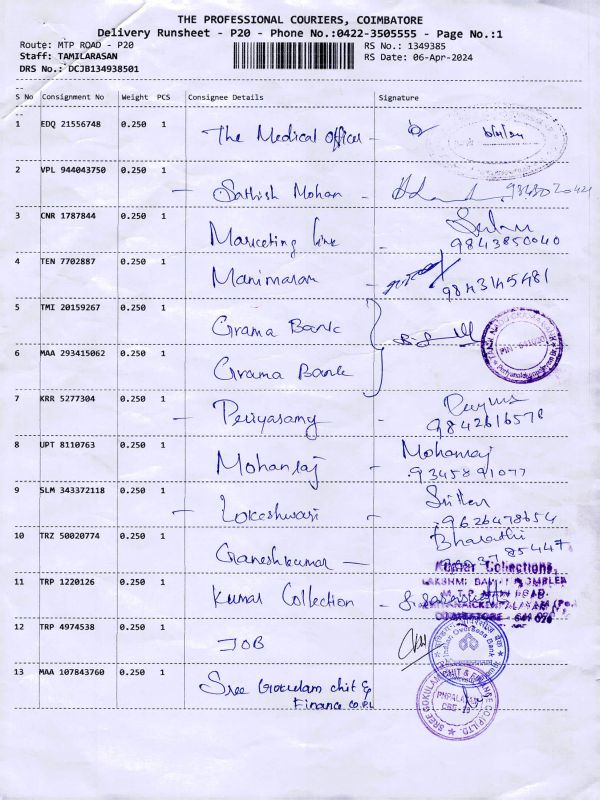 THE PROFESSIONAL COURIERS, COIMBATORE
Delivery Runsheet - P20 - Phone No.:0422-3505555 - Page No.:1
Route: MTP ROAD - P20 RS No.: 1349385
Staff: TAMILARASAN RS Date: 06-Apr-2024
DRS No.: DCJB134938501
S No Consignment No Weight PCS Consignee Details Signature
1 EDQ 21556748 0.250 1 The Medical Officer -
2 VPL 944043750 0.250 1 - Sathish Mohan -
3 CNR 1787844 0.250 1 Marketing line -
9843850040
4 TEN 7702887 0.250 1 Manimaran -
9843145481
5 TMI 20159267 0.250 1 Grama Bank
6 MAA 293415062 0.250 1 Grama Bank
7 KRR 5277304 0.250 1 - Periyasamy -
9842616578
8 UPT 8110763 0.250 1 Mohanraj - Mohanraj
9345891077
9 SLM 343372118 0.250 1 - Lokeshwari -
9626478654
10 TRZ 50020774 0.250 1 Ganeshkumar - Bharathi
11 TRP 1220126 0.250 1 Kumar Collection -
Kumar Collections,
COIMBATORE
12 TRP 4974538 0.250 1 IOB
Indian Overseas Bank
13 MAA 107843760 0.250 1 Sree Gokulam chit &
Finance Co.P.L
SREE GOKULAM CHIT & FINANCE CO.(P) LTD.